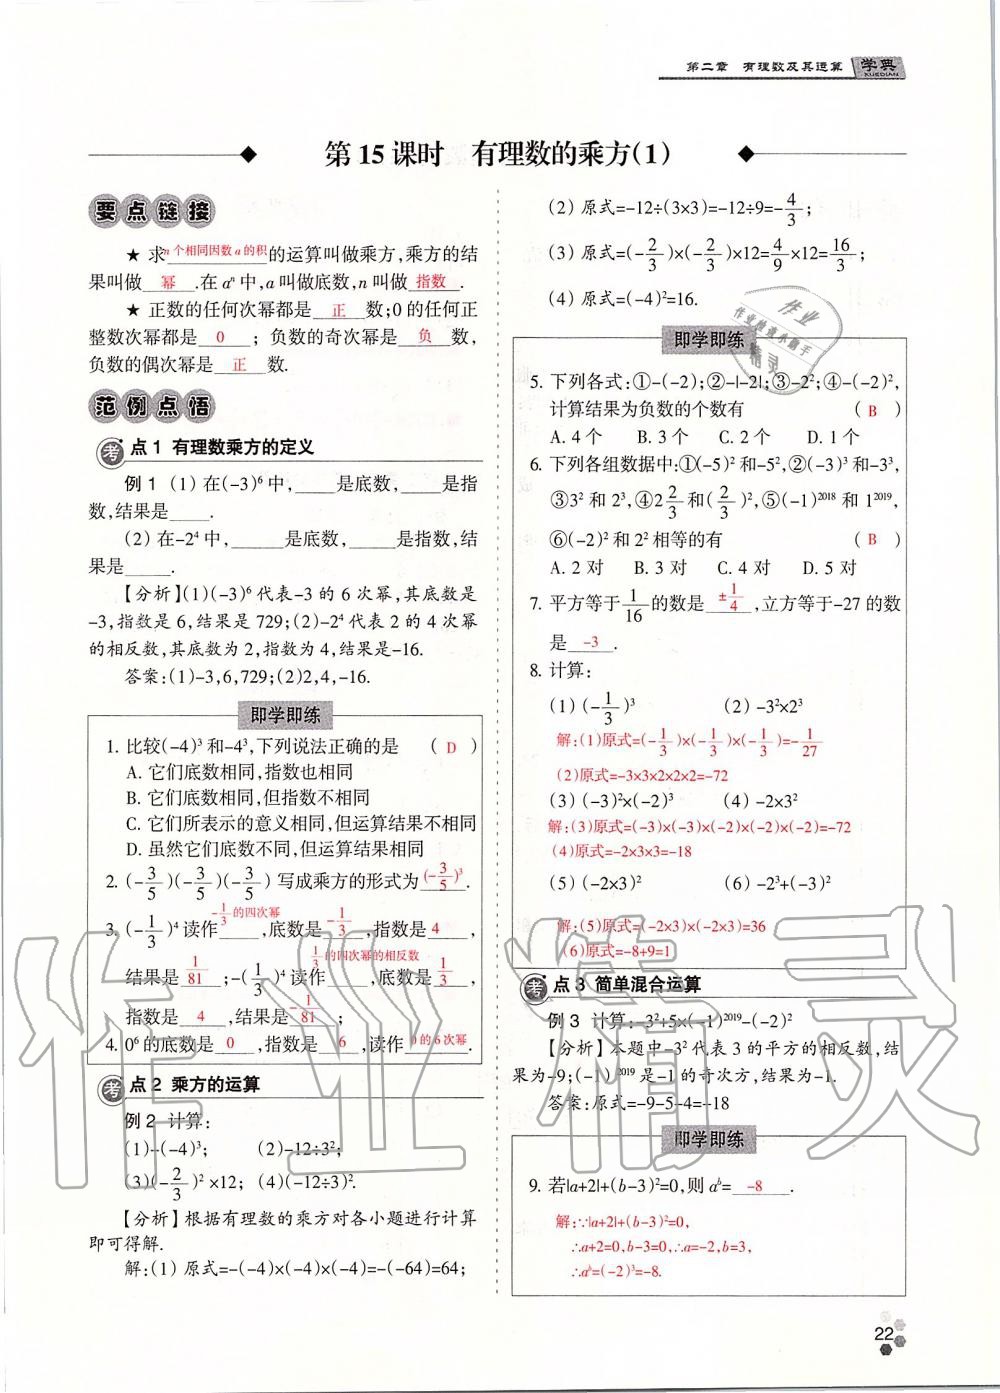 第二章 有理数及其运算 学典
XUEDIAN
第15课时 有理数的乘方(1)
要点链接
★ 求n个相同因数a的积的运算叫做乘方,乘方的结
果叫做 幂 .在 aⁿ 中,a 叫做底数,n 叫做 指数 .
★ 正数的任何次幂都是 正 数;0 的任何正
整数次幂都是 0 ; 负数的奇次幂是 负 数,
负数的偶次幂是 正 数.
范例点悟
考点1 有理数乘方的定义
例1 (1) 在(-3)⁶ 中,____是底数,____是指
数,结果是____.
(2) 在-2⁴ 中,____是底数,____是指数,结
果是____.
【分析】(1)(-3)⁶ 代表-3 的 6 次幂,其底数是
-3,指数是 6,结果是 729;(2)-2⁴ 代表 2 的 4 次幂
的相反数,其底数为 2,指数为 4,结果是-16.
答案:(1)-3,6,729;(2)2,4,-16.
即学即练
1. 比较(-4)³ 和-4³,下列说法正确的是 ( D )
A. 它们底数相同,指数也相同
B. 它们底数相同,但指数不相同
C. 它们所表示的意义相同,但运算结果不相同
D. 虽然它们底数不同,但运算结果相同
2. (-3/5)(-3/5)(-3/5) 写成乘方的形式为 (-3/5)³ .
3. (-1/3)⁴ 读作 -1/3的四次幂 ,底数是 -1/3 ,指数是 4 ,
结果是 1/81 ;-(1/3)⁴ 读作 1/3的四次幂的相反数 ,底数是 1/3 ,
指数是 4 ,结果是 -1/81 ;
4. 0⁶ 的底数是 0 ,指数是 6 ,读作 0的6次幂 .
考点2 乘方的运算
例2 计算:
(1)-(-4)³; (2)-12÷3²;
(3)(-2/3)²×12; (4)(-12÷3)².
【分析】根据有理数的乘方对各小题进行计算
即可得解.
解:(1) 原式=-(-4)×(-4)×(-4)=-(-64)=64;
(2) 原式=-12÷(3×3)=-12÷9=-4/3;
(3) 原式=(-2/3)×(-2/3)×12=4/9×12=16/3;
(4) 原式=(-4)²=16.
即学即练
5. 下列各式:①-(-2);②-|-2|;③-2²;④-(-2)²,
计算结果为负数的个数有 ( B )
A. 4 个 B. 3 个 C. 2 个 D. 1 个
6. 下列各组数据中:①(-5)² 和-5²,②(-3)³ 和-3³,
③3² 和 2³,④2 2/3 和(2/3)²,⑤(-1)²⁰¹⁸ 和 1²⁰¹⁹,
⑥(-2)² 和 2² 相等的有 ( B )
A. 2 对 B. 3 对 C. 4 对 D. 5 对
7. 平方等于1/16的数是 ±1/4 ,立方等于-27 的数
是 -3 .
8. 计算:
(1) (-1/3)³ (2) -3²×2³
解:(1)原式=(-1/3)×(-1/3)×(-1/3)=-1/27
(2)原式=-3×3×2×2×2=-72
(3) (-3)²×(-2)³ (4) -2×3²
解:(3)原式=(-3)×(-3)×(-2)×(-2)×(-2)=-72
(4)原式=-2×3×3=-18
(5) (-2×3)² (6) -2³+(-3)²
解:(5)原式=(-2×3)×(-2×3)=36
(6)原式=-8+9=1
考点3 简单混合运算
例3 计算:-3²+5×(-1)²⁰¹⁹-(-2)²
【分析】本题中-3² 代表 3 的平方的相反数,结
果为-9;(-1)²⁰¹⁹ 是-1 的奇次方,结果为-1.
答案:原式=-9-5-4=-18
即学即练
9. 若|a+2|+(b-3)²=0,则 aᵇ= -8 .
解:∵|a+2|+(b-3)²=0,
∴a+2=0,b-3=0,∴a=-2,b=3,
∴aᵇ=(-2)³=-8.
22
作业精灵
作业
作业检查小助手
精灵